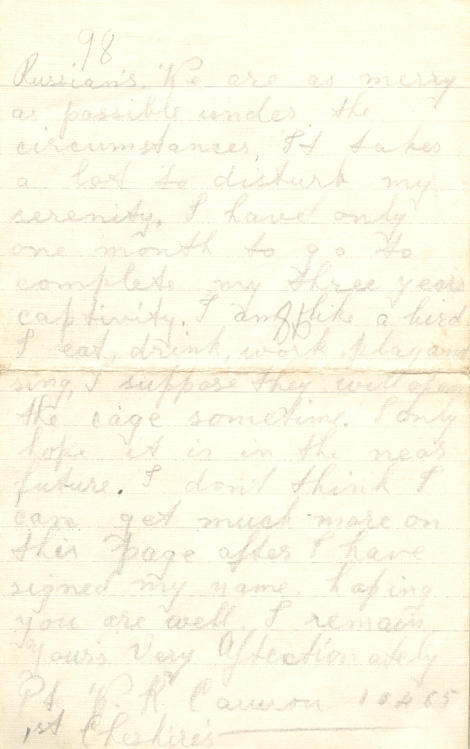 98
Russian's. We are as merry
as possible under the
circumstances, It takes
a lot to disturb my
serenity. I have only
one month to go to
complete my three years
captivity. I am like a bird
I eat, drink, work, play and
sing, I suppose they will open
the cage sometime. I only
hope it is in the near
future. I don't think I
can get much more on
this page after I have
signed my name hoping
you are well. I remain
Yours Very Affectionately
Pt. Cameron 10465
1st Cheshires